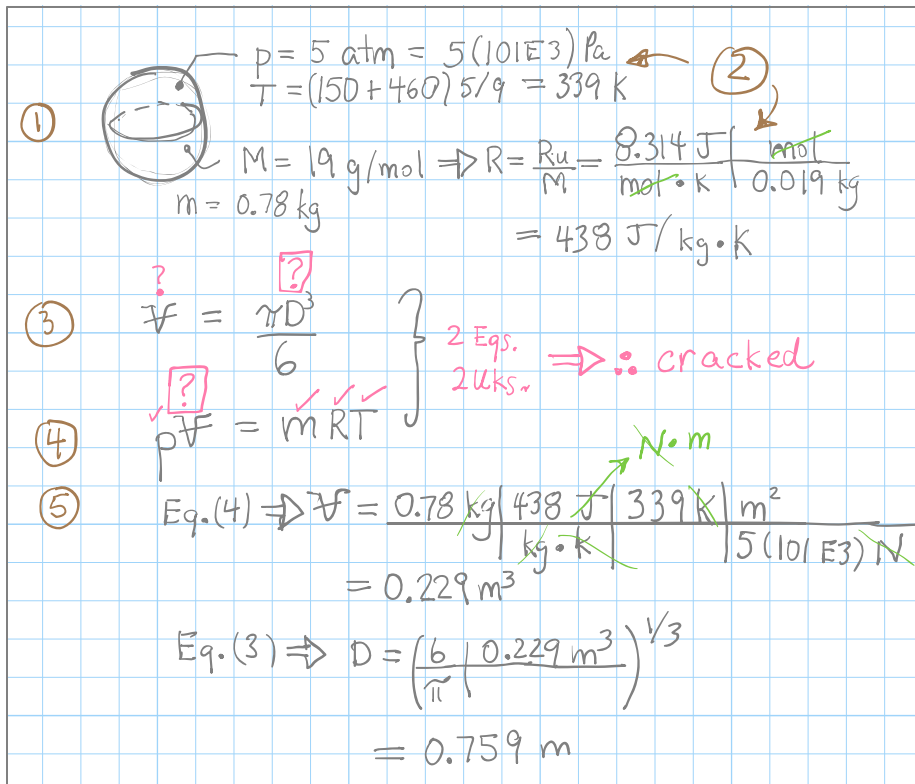 p = 5 atm = 5(101E3) Pa
T = (150+460) 5/9 = 339 K
②
①
M = 19 g/mol ⇒ R = Ru/M = 8.314 J/mol·K | mol/0.019 kg
m = 0.78 kg
= 438 J/kg·K
? ?
③ V = πD³/6
2 Eqs.
2 Uks. ⇒ ∴ cracked
?
④ ✓pV = m✓R✓T✓
N·m
⑤ Eq.(4) ⇒ V = 0.78 kg | 438 J/kg·K | 339 K | m²/5(101E3) N
= 0.229 m³
Eq.(3) ⇒ D = (6/π | 0.229 m³)^1/3
= 0.759 m